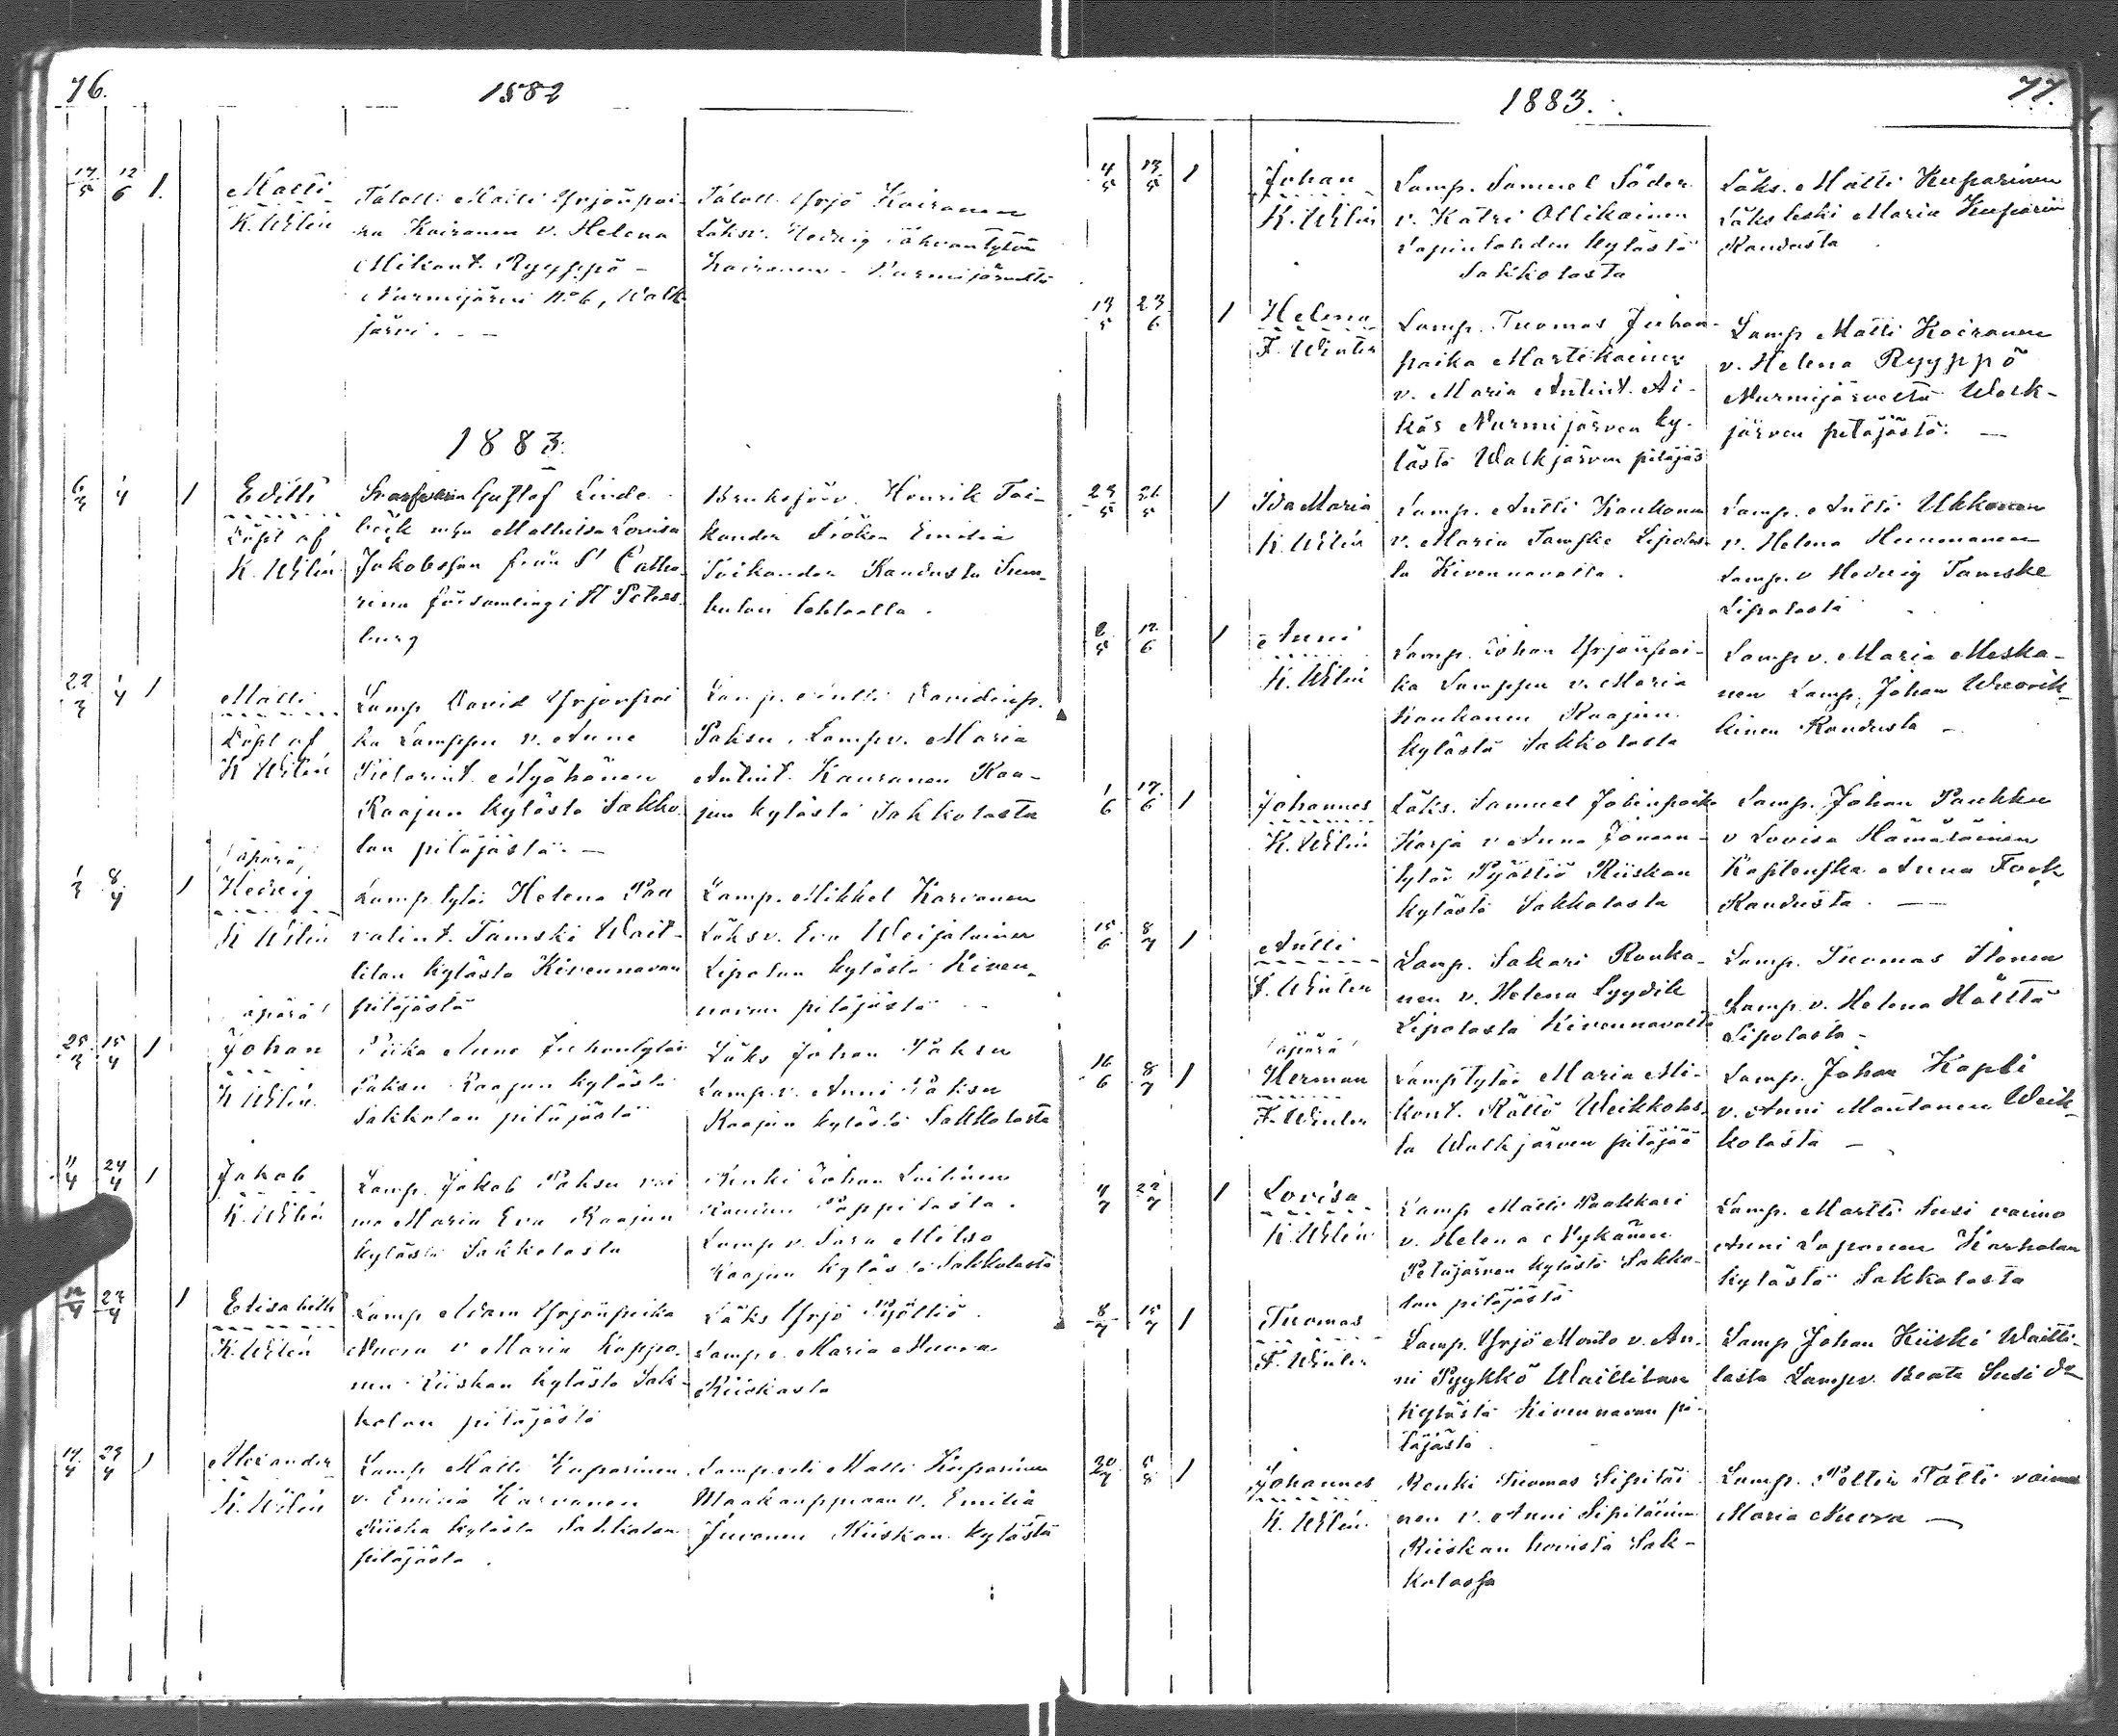 76.
1882
17/5 12/6 1.
Matti
K. Wilén
Taloll. Matti Yrjönpoi-
ka Koiranen v. Helena
Mikont. Ryyppö -
Nurmijärvi No 6, Walk-
järvi. -
Taloll. Yrjö Koiranen
Läksv. Hedvig Juhontytär
Koiranen. Nurmijärveltä
1883.
6/3 1/4 1
Editti
Döpt af
K. Wilén
Gustaf Linde-
bäck m. hu Mathilda Lovisa
Jakobsson från St Catha-
rina församling i St Peters-
burg
Bruksförv. Henrik Toi-
kander Fröken Emilia
Toikander Raudusta Sum-
bulan tehtaalla.
22/3 1/4 1
Matti
Döpt af
K. Wilén
Lamp David Yrjönpoi
ka Lamppu v. Anna
Pietarint. Myöhänen
Raajun kylästä Sakko-
lan pitäjästä. -
Lamp. Antti Davidinp.
Paksu. Lamp v. Maria
Antint. Kauranen Raa-
jun kylästä Sakkolasta
1/3 8/4 1
äpärä
Hedvig
K. Wilén
Lamp. tytär Helena Paa
valint. Tamski Wait-
tilan kylästä Kivennavan
pitäjästä
Lamp. Mikkel Karvanen
Läksv. Eva Weijalainen
Lipolan kylästä Kiven-
navan pitäjästä
25/3 15/4 1
äpärä
Johan
K. Wilén.
Piika Anna Juhontytär
Paksu Raajun kylästä
Sakkolan pitäjästä
Läks Johan Paksu
Lamp. v. Anni Paksu
Raajun kylästä Sakkolasta
11/4 24/4 1
Jakob
K. Wilén
Lamp. Jakob Paksu vai
mo Maria Eva Raajun
kylästä Sakkolasta
Renki Johan Laitinen
Raudun Pappilasta.
Lamp v. Sara Metso
Raajun kylästä Sakkolasta
27/4 1
Elisabeth
K. Wilén
Lamp Adam Yrjönpoika
Nuora v Maria Kappo-
nen Riiskan kylästä Sak-
kolan pitäjästä
Läks Yrjö Pyöttiö.
Lamp v. Maria Nuora
Riiskasta
14/4 29/4 1
Alexander
K. Wilén
Lamp Matti Kuparinen.
v. Emilia Karvanen
Riiska kylästä Sakkolan
pitäjästä.
Lampuoti Matti Kuparinen
Maakauppiaan v. Emilia
Juvonen Riiskan kylästä
1883.
77.
4/5 13/5 1
Johan
K. Wilén
Lamp. Samuel Söder
v. Katri Ollikainen
Lapinlahden kylästä
Sakkolasta
Läks. Matti Kuparinen
Läks leski Maria Kuparin
Raudusta
13/5 23/6 1
Helena
F. Winter
Lamp. Tuomas Juhon-
poika Martikainen
v. Maria Antint. Äi-
käs Nurmijärven ky-
lästä Walkjärven pitäjäs
Lamp Matti Koiranen
v. Helena Ryyppö
Nurmijärveltä Walk-
järven pitäjästä. -
24/5 26/5 1
Ida Maria
K. Wilén
Lamp. Antti Kaukonen
v. Maria Tamske Lipolas-
ta Kivennavalta.
Lamp. Antti Ukkonen
v. Helena Hunnonen
Lamp. v Hedvig Tamske
Lipolasta
2/5 12/6 1
Anni
K. Wilén
Lamp. Johan Yrjönpoi-
ka Lamppu v. Maria
Kaukonen Raajun
kylästä Sakkolasta
Lamp v. Maria Meska-
nen Lamp. Johan Wuorik-
kinen Raudusta -
1/6 17/6 1
Johannes
K. Wilén
Läks. Samuel Jobinpoika
Karja v Anna Joonan-
tytär Pyöttiö Riiskan
kylästä Sakkolasta
Lamp. Johan Paukku
v Lovisa Hämäläinen
Anna Fock
Raudusta. -
15/6 8/7 1
Antti
F. Winter
Lamp. Sakari Rouka-
nen v. Helena Lyydik
Lipolasta Kivennavalta
Lamp. Tuomas Ilonen
Lamp v. Helena Hättö
Lipolasta -
16/6 8/7 1
äpärä
Herman
F. Winter
Lamp tytär Maria Mi-
kont. Rättö Weikkolas-
ta Walkjärven pitäjää
Lamp. Johan Kopli
v. Anni Montonen Weik-
kolasta -
4/7 22/7 1
Lovisa
K. Wilén
Lamp Matti Paakkari
v. Helena Nykänen
Petäjärven kylästä Sakko-
lan pitäjästä
Lamp. Martti Susi vaimo
Anni Loponen Karholan
kylästä Sakkolasta
8/7 15/7 1
Tuomas
F. Winter
Lamp. Yrjö Monto v. An-
ni Pyykkö Waittilan
kylästä Kivennavan pi-
täjästä.
Lamp Johan Kiiski Waitti-
lasta Lamp v. Beata Susi
20/7 5/8 1
Johannes
K. Wilén
Renki Tuomas Sipiläi-
nen v. Anni Sipiläinen
Riiskan hovista Sak-
kolassa
Lamp. Petter Tätti vaimo
Maria Nuora -